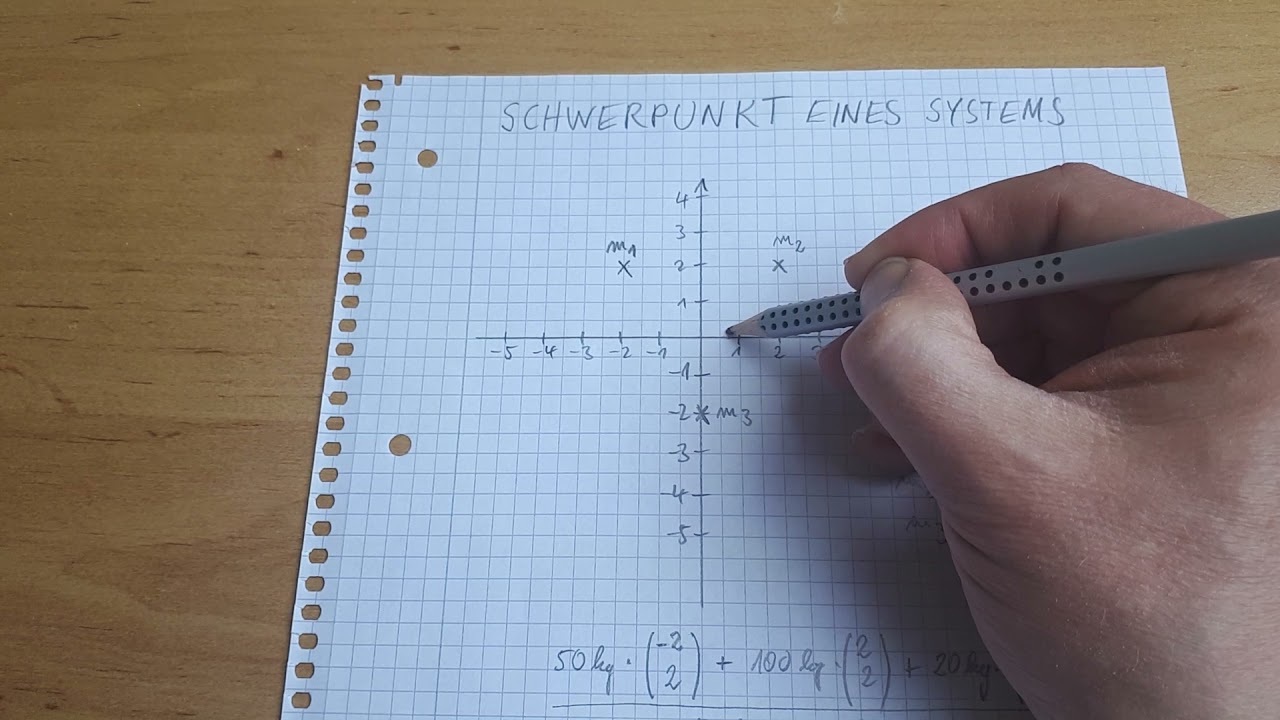 SCHWERPUNKT EINES SYSTEMS
4
3
m1 m2
2
1
-5 -4 -3 -2 -1 1 2
-1
-2 m3
-3
-4
-5
50 kg · (-2 2) + 100 kg · (2 2) + 20 kg